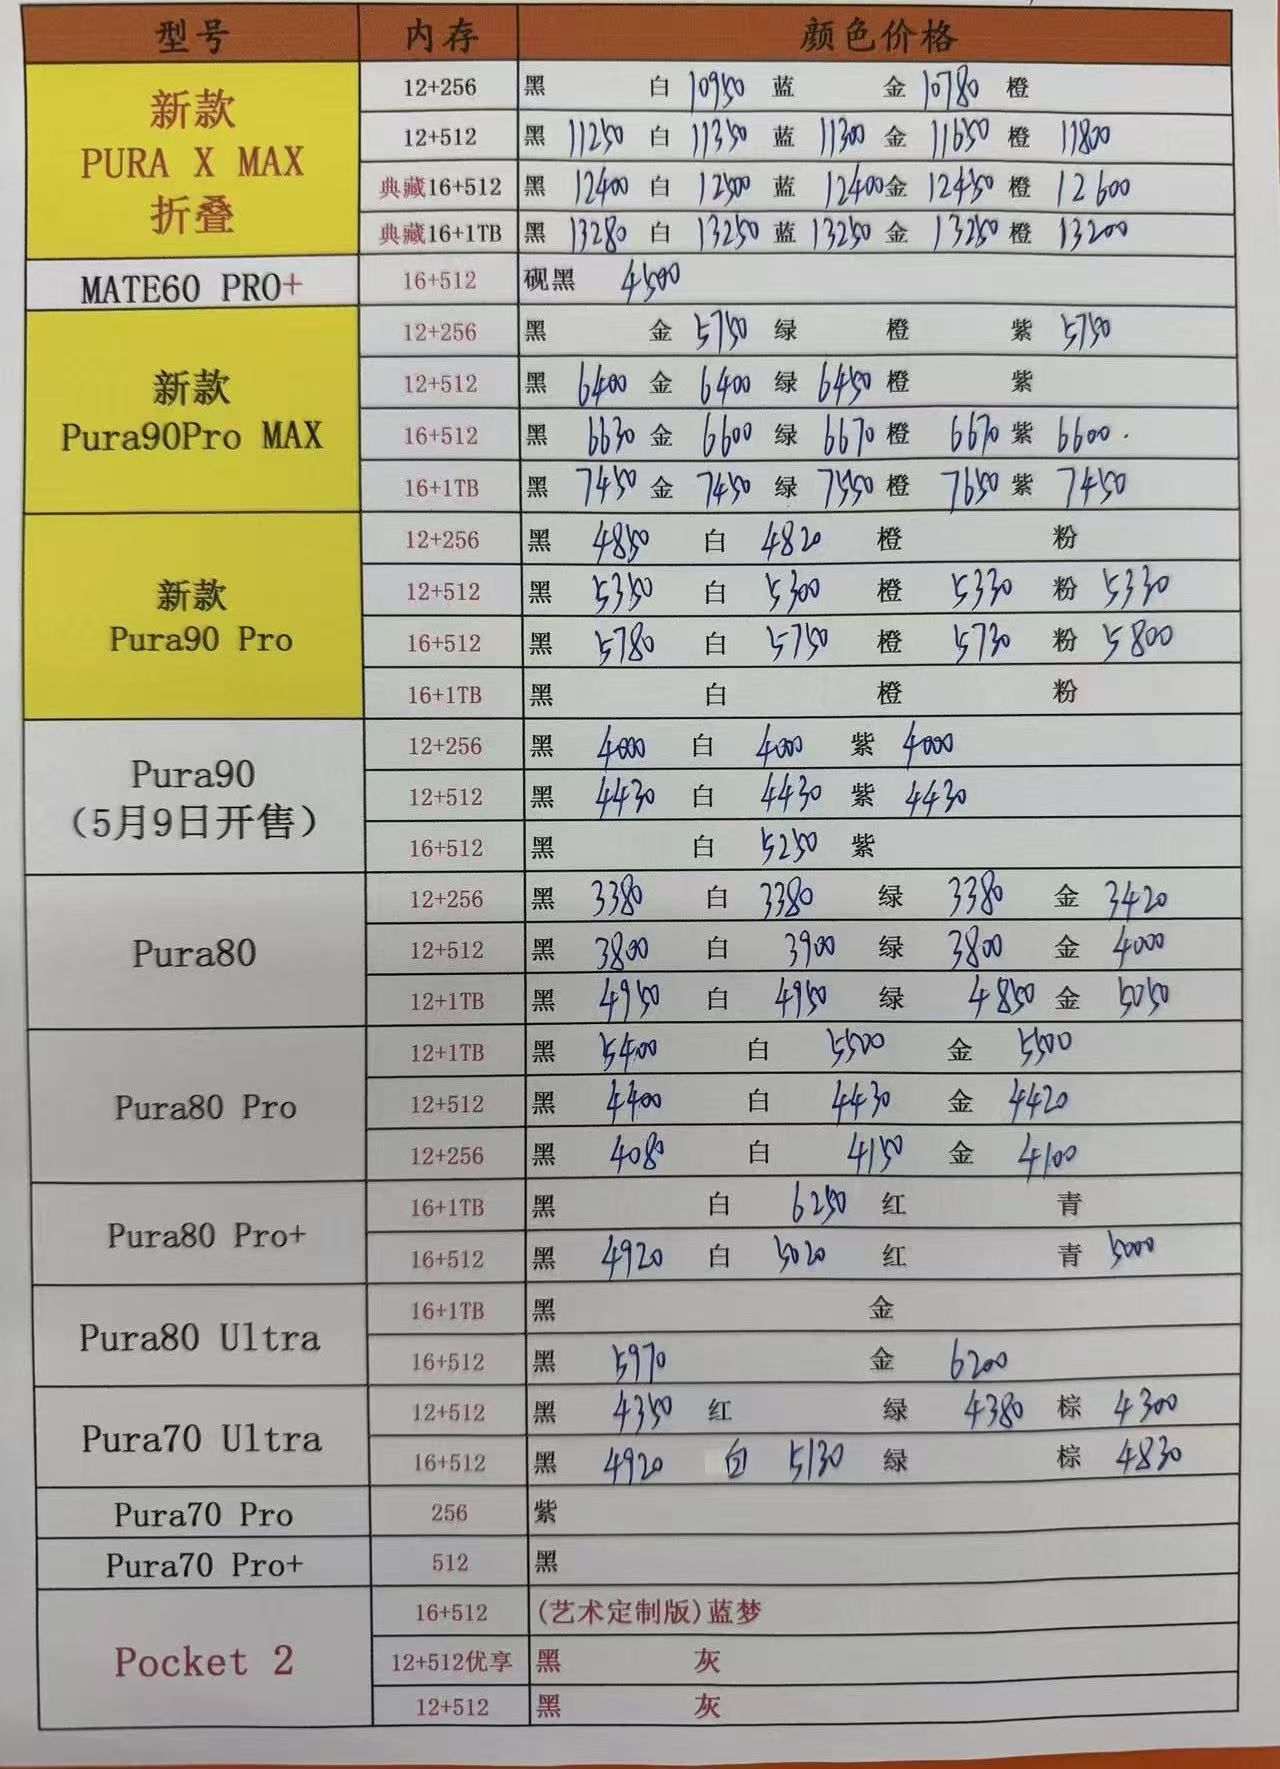 型号 内存 颜色价格
新款
PURA X MAX
折叠
12+256 黑 白 10950 蓝 金 10780 橙
12+512 黑 11250 白 11350 蓝 11300 金 11650 橙 11800
典藏16+512 黑 12400 白 12500 蓝 12400 金 12450 橙 12600
典藏16+1TB 黑 13280 白 13250 蓝 13250 金 13250 橙 13200
MATE60 PRO+ 16+512 砚黑 4500
新款
Pura90Pro MAX
12+256 黑 金 5750 绿 橙 紫 5750
12+512 黑 6400 金 6400 绿 6450 橙 紫
16+512 黑 6630 金 6600 绿 6670 橙 6670 紫 6600.
16+1TB 黑 7450 金 7450 绿 7550 橙 7650 紫 7450
新款
Pura90 Pro
12+256 黑 4850 白 4820 橙 粉
12+512 黑 5350 白 5300 橙 5330 粉 5330
16+512 黑 5780 白 5750 橙 5730 粉 5800
16+1TB 黑 白 橙 粉
Pura90
（5月9日开售）
12+256 黑 4000 白 4000 紫 4000
12+512 黑 4430 白 4430 紫 4430
16+512 黑 白 5250 紫
Pura80
12+256 黑 3380 白 3380 绿 3380 金 3420
12+512 黑 3800 白 3900 绿 3800 金 4000
12+1TB 黑 4950 白 4950 绿 4850 金 5050
Pura80 Pro
12+1TB 黑 5400 白 5500 金 5500
12+512 黑 4400 白 4430 金 4420
12+256 黑 4080 白 4150 金 4100
Pura80 Pro+
16+1TB 黑 白 6250 红 青
16+512 黑 4920 白 5020 红 青 5000
Pura80 Ultra
16+1TB 黑 金
16+512 黑 5970 金 6200
Pura70 Ultra
12+512 黑 4350 红 绿 4380 棕 4300
16+512 黑 4920 白 5130 绿 棕 4830
Pura70 Pro 256 紫
Pura70 Pro+ 512 黑
Pocket 2
16+512 (艺术定制版)蓝梦
12+512优享 黑 灰
12+512 黑 灰